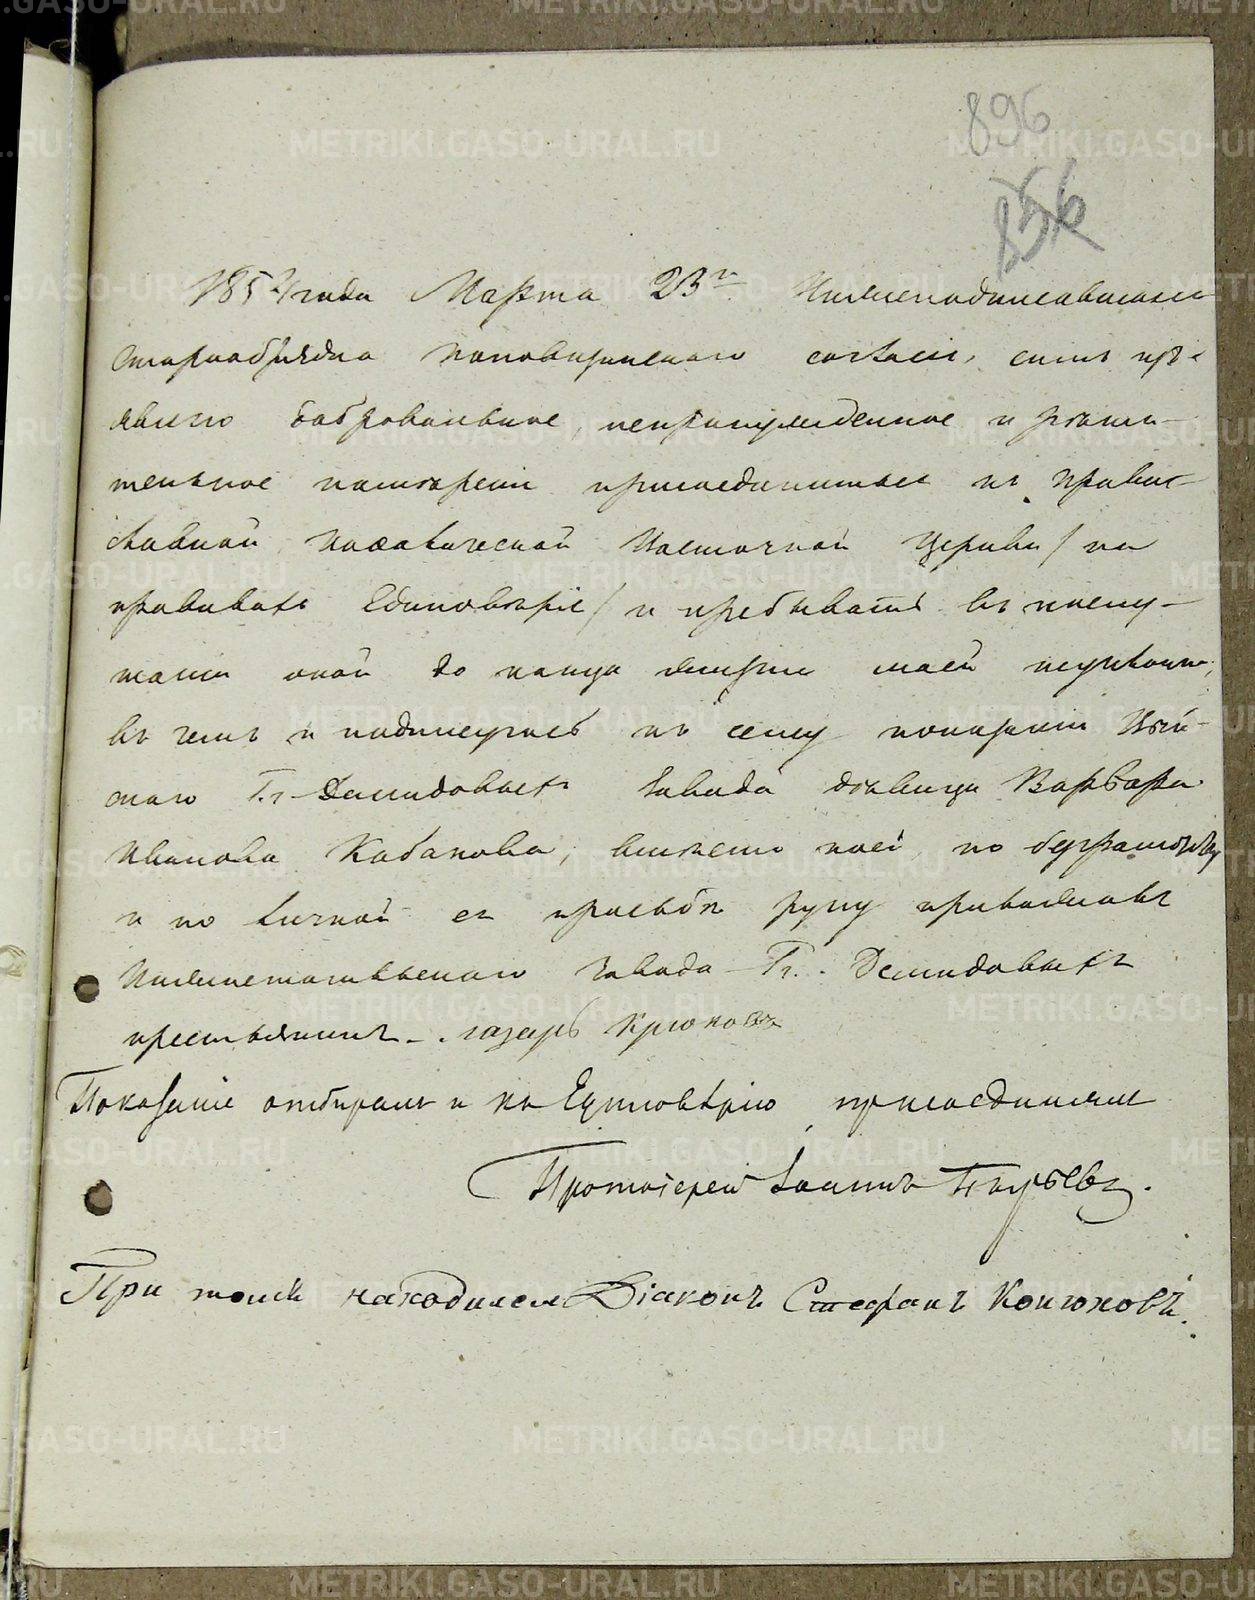 896
856
185 года Марта 23 го Нижеподписавшаяся
старообрядка поповщинского согласия, симъ изъ-
являю добровольное, непринужденное и решит-
тельное намѣреніе присоединиться къ Право-
славной Каѳолической Восточной Церкви /на
правилахъ Единовѣрія/ и пребывать въ послу-
шаніи оной до конца жизни моей неуклонно,
въ чемъ и подписуюсь къ сему показанію Вый-
скаго Г.г. Демидовыхъ завода дѣвица Варвара
Иванова Кабакова, вмѣсто коей, по безграмотству
и по личной ея просьбѣ руку приложилъ
Нижнетагильскаго завода Гг. Демидовыхъ
крестьянинъ лазарь Крюковъ
Показаніе отбиралъ и къ Единовѣрію присоединялъ
Протоіерей Іоаннъ
При томъ находился Діаконъ Стефанъ Конюховъ.
METRIKI.GASO-URAL.RU